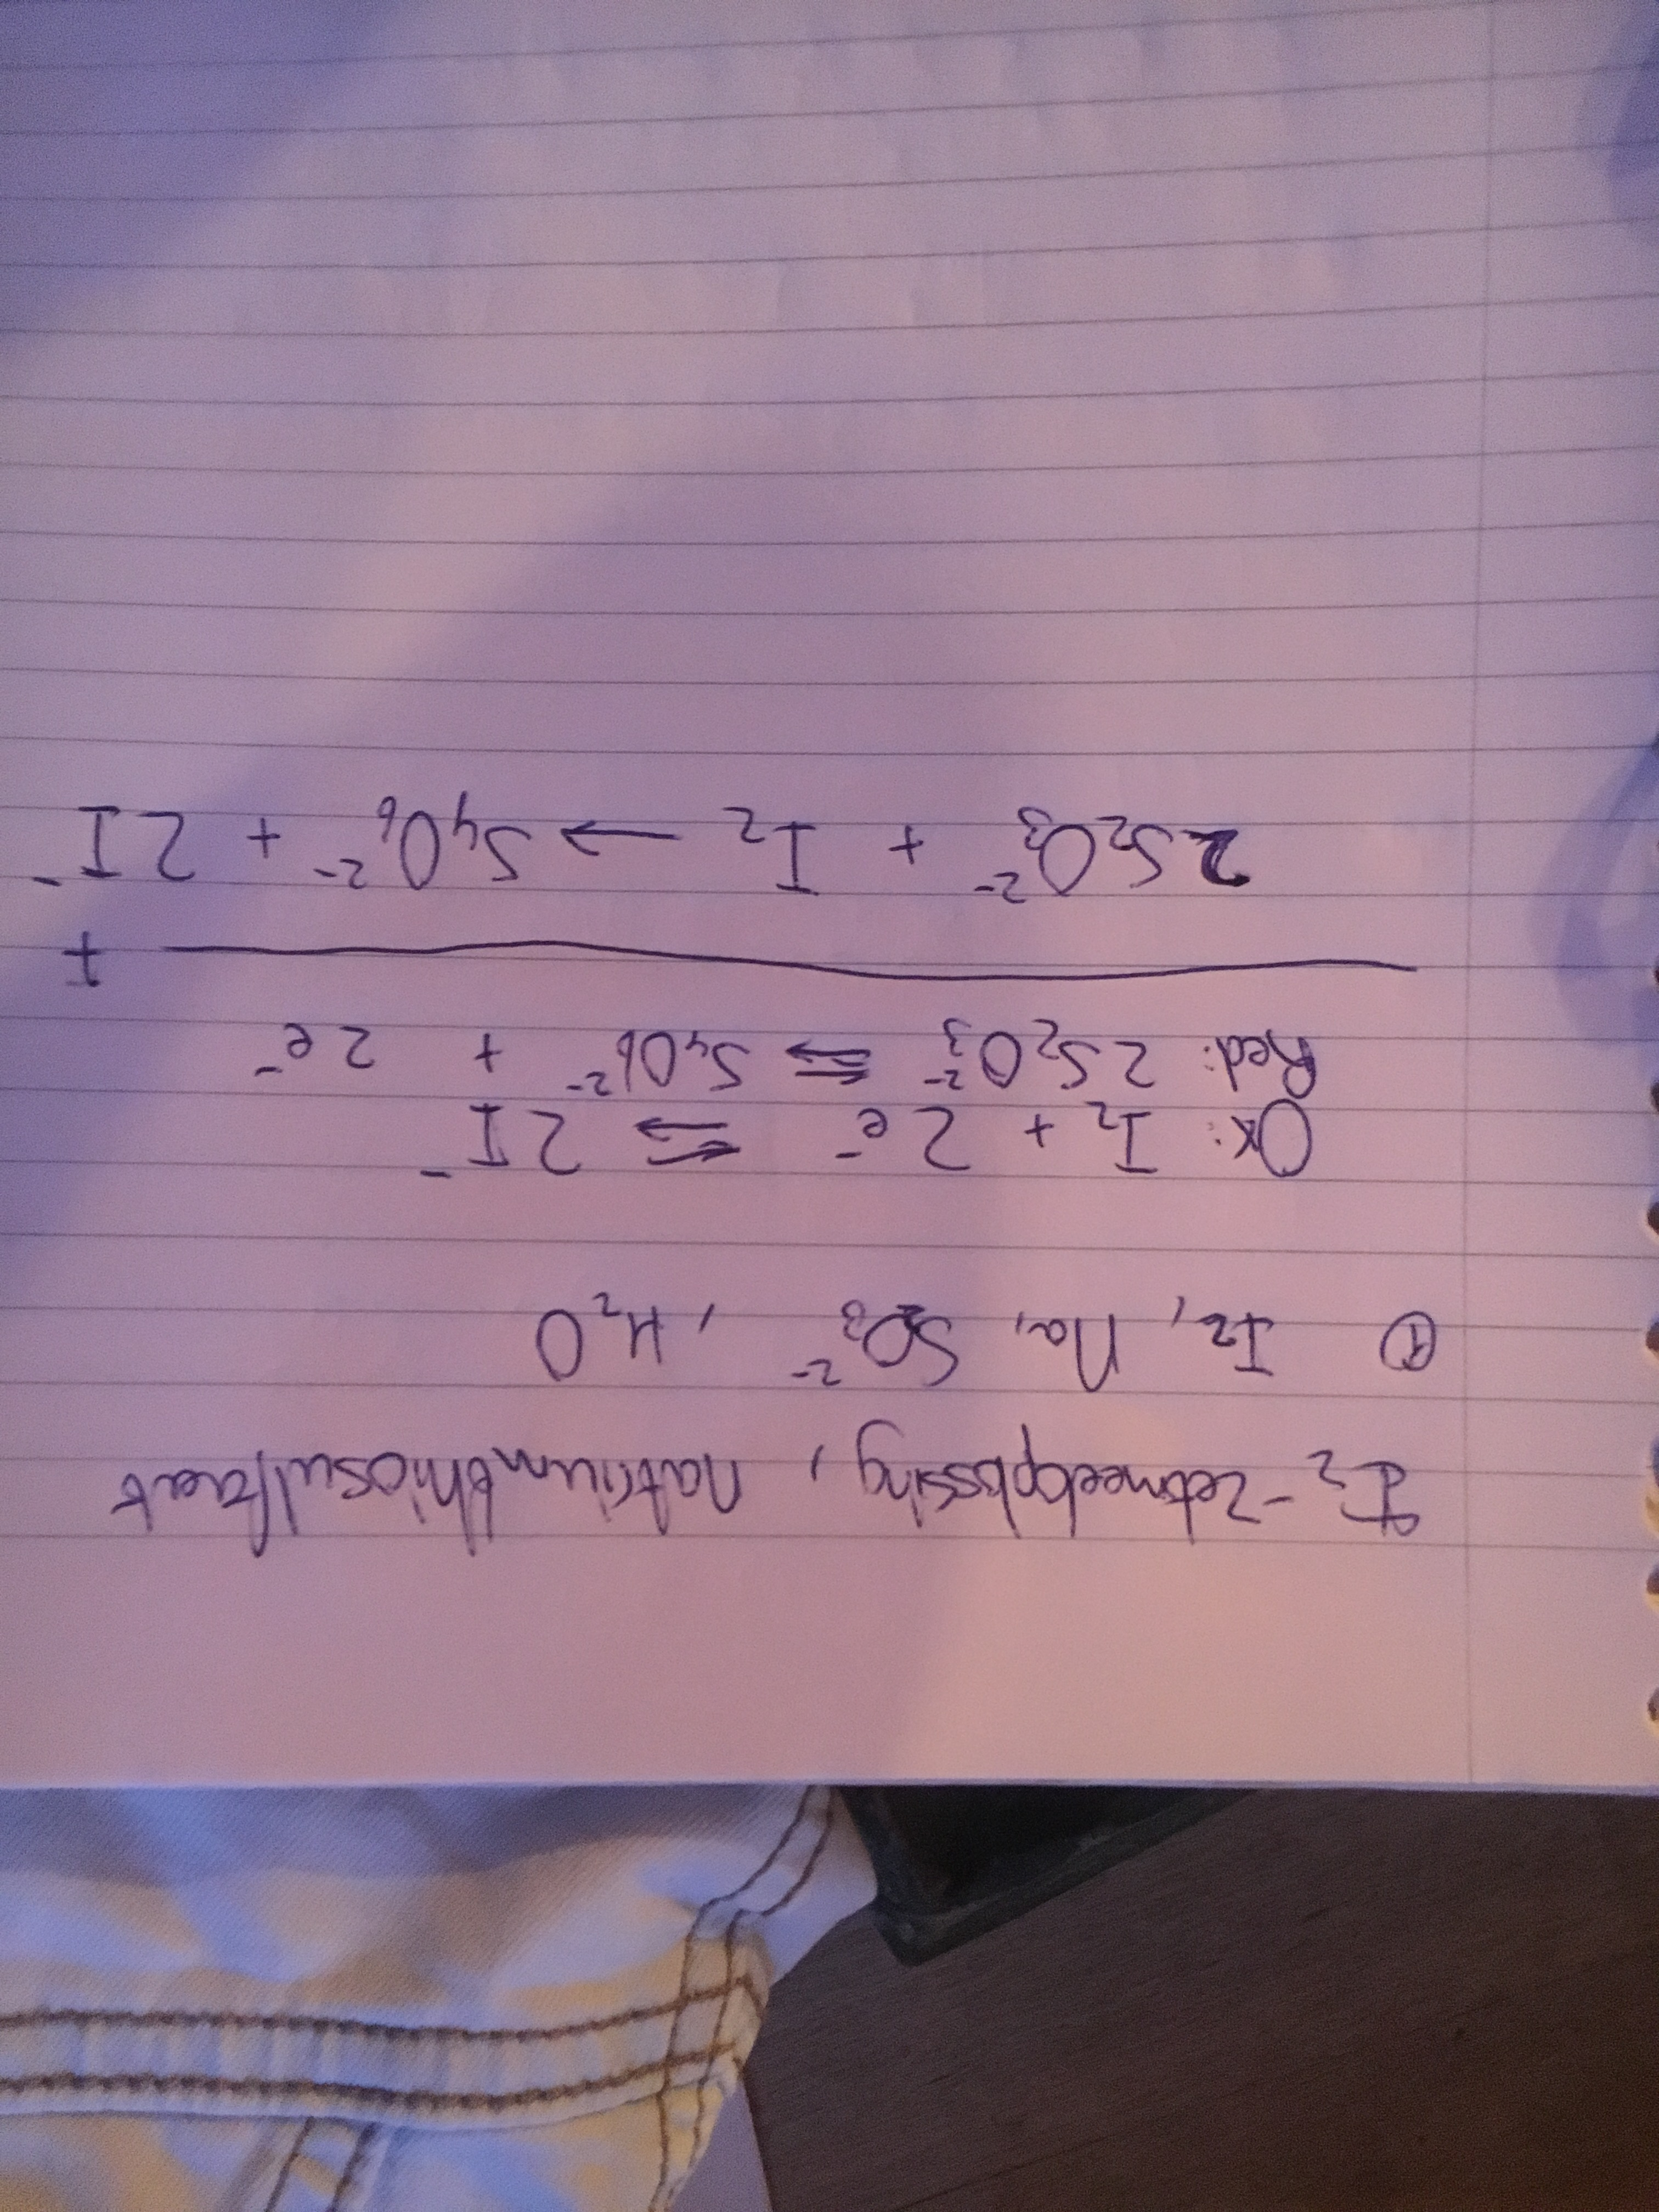 I₂-zetmeeloplossing, natriumthiosulfaat
① I₂, Na, S₂O₃²⁻, H₂O
Ox: I₂ + 2e⁻ ⇆ 2I⁻
Red: 2S₂O₃²⁻ ⇆ S₄O₆²⁻ + 2e⁻
+
2S₂O₃²⁻ + I₂ → S₄O₆²⁻ + 2I⁻